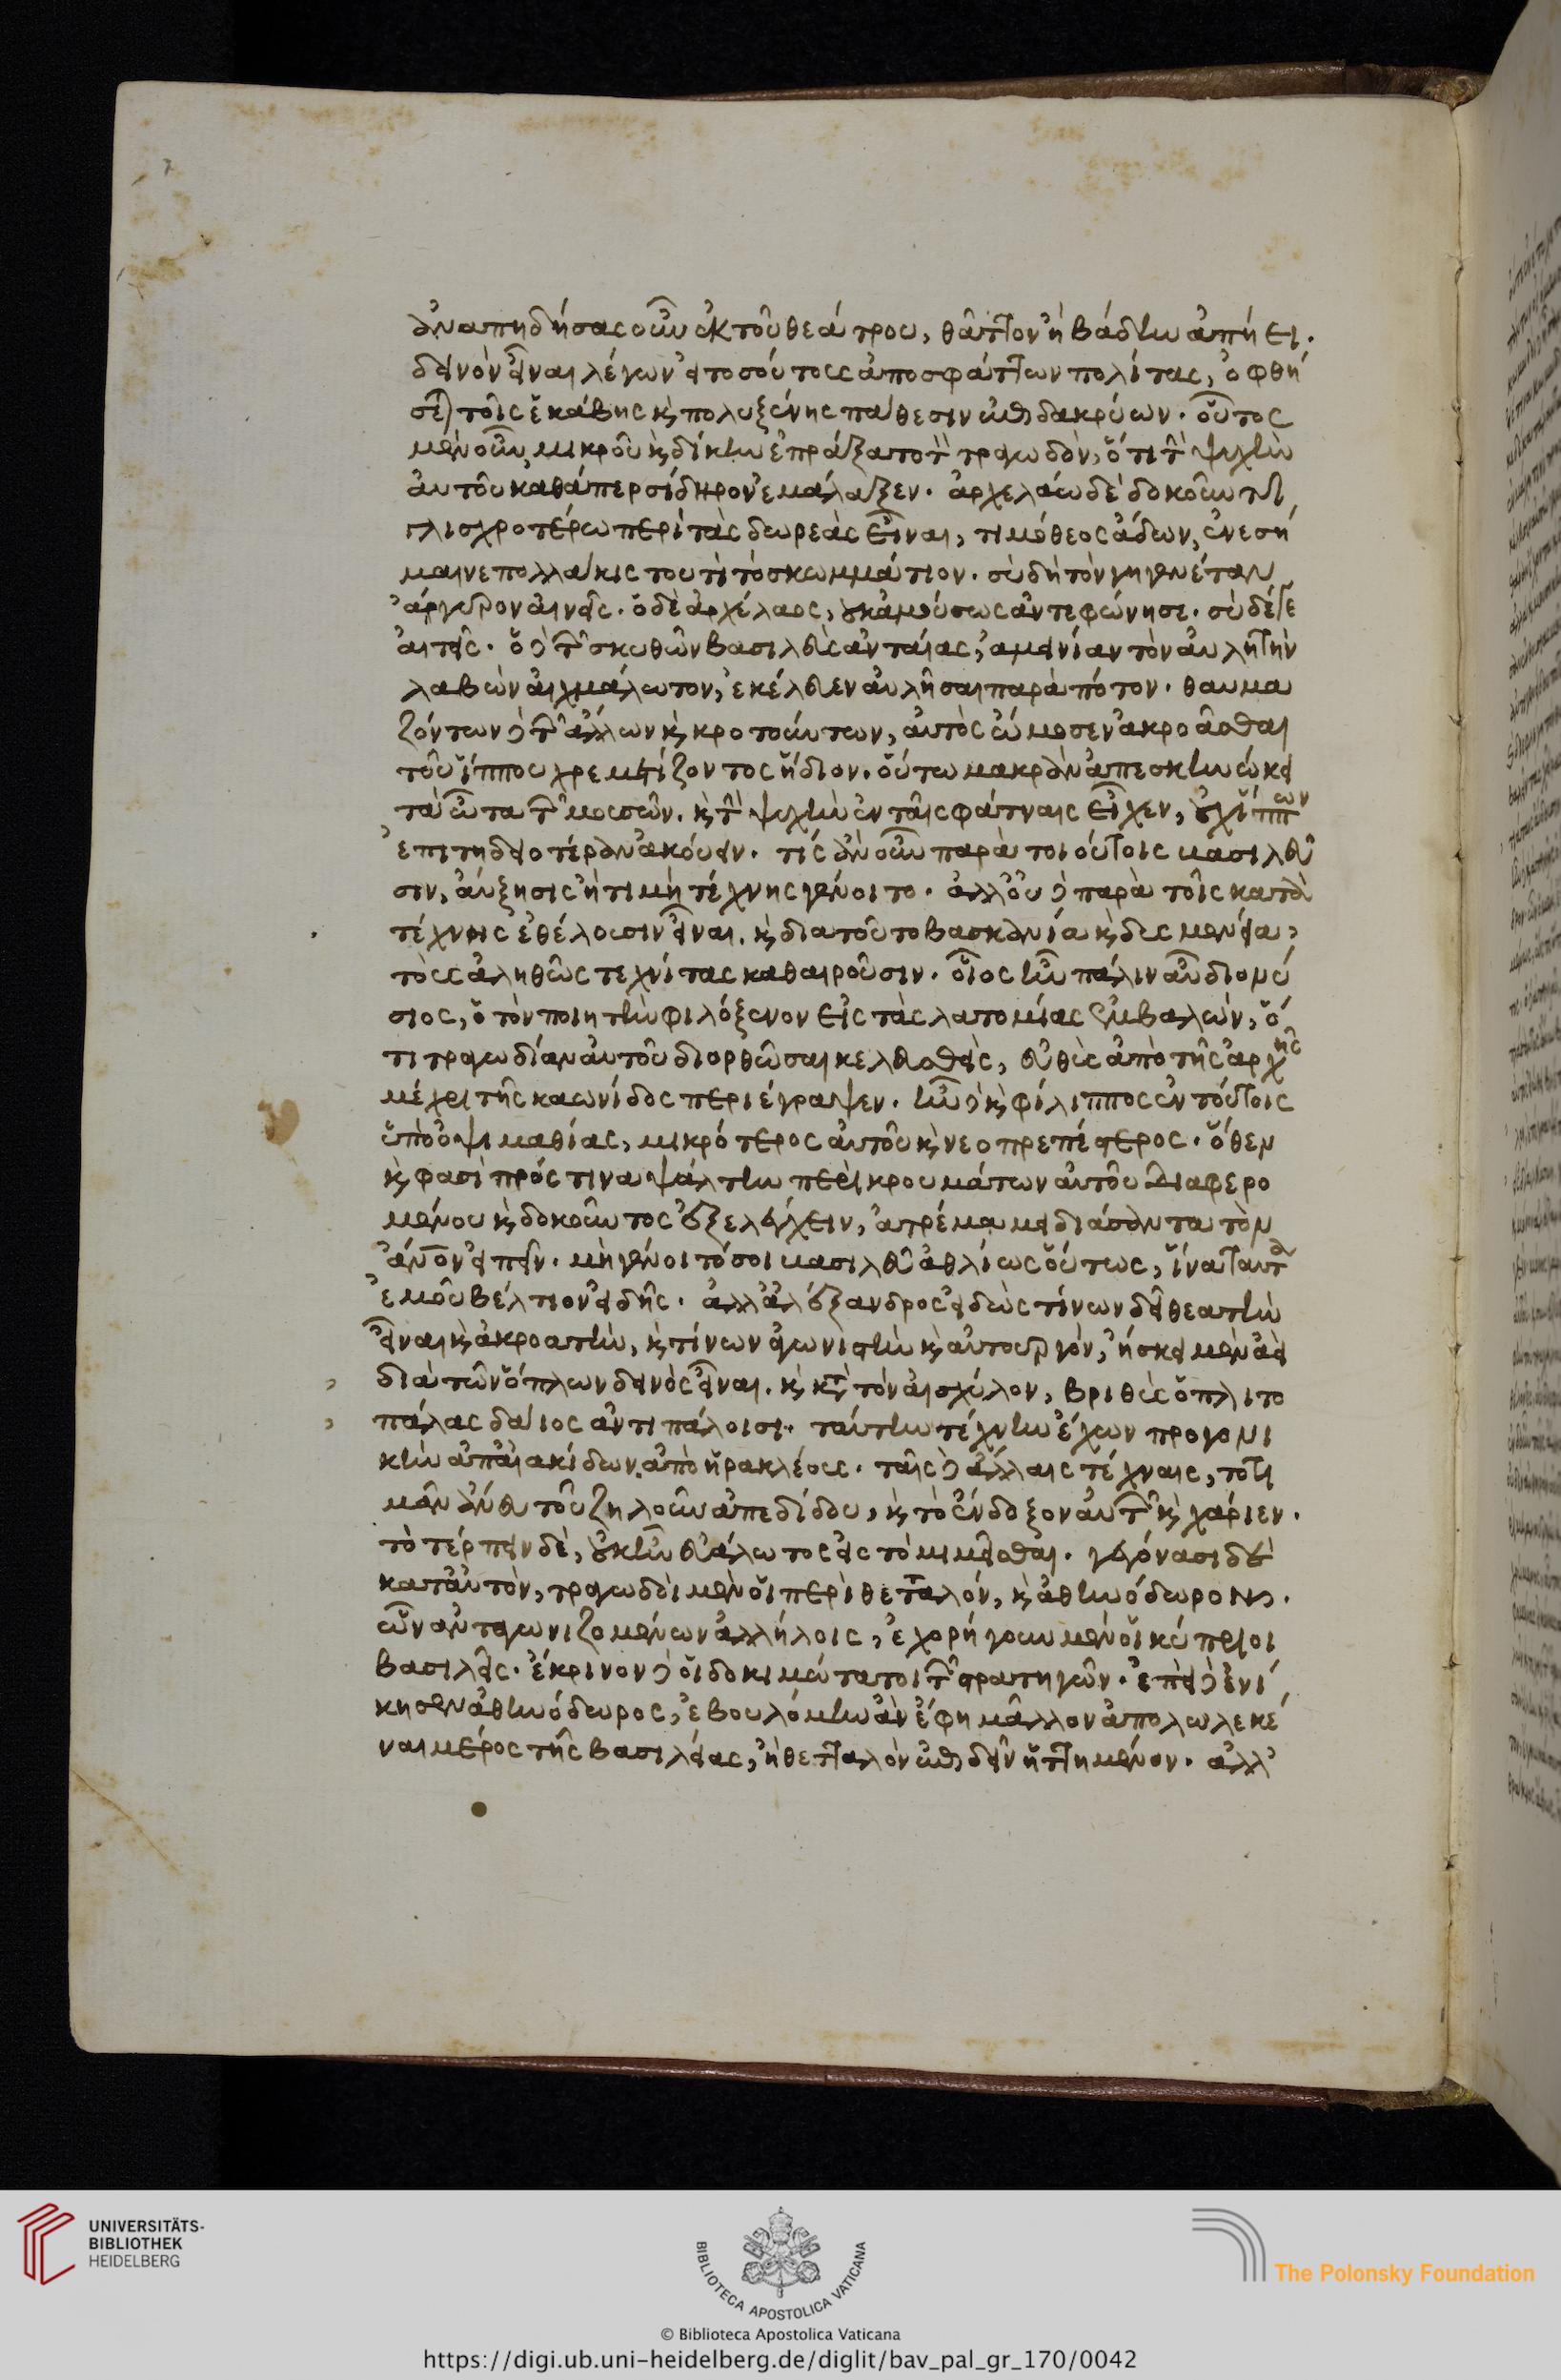 ἀναπηδήσας οὖν ἐκ τοῦ θεάτρου, θᾶττον ἢ βάδην ἀπήει.
δεινὸν εἶναι λέγων εἰ τοσούτους ἀποσφάττων πολίτας, ὀφθή
σεται τοῖς ἑκάβης καὶ πολυξένης πάθεσιν ἐπιδακρύων. οὗτος
μὲν οὖν μικροῦ καὶ δίκην ἐπράξατο τὸν τραγωδὸν, ὅτι τὴν ψυχὴν
αὐτοῦ καθάπερ σίδηρον ἐμάλαξεν. ἀρχελάω δὲ δοκοῦντι
γλισχροτέρω περὶ τὰς δωρεὰς εἶναι, τιμόθεος ἄδων, ἐνεσή
μαινε πολλάκις τουτὶ τὸ σκωμμάτιον. σὺ δὴ τὸν γηγενέταν
ἄργυρον αἰνεῖς. ὁ δὲ ἀρχέλαος, οὐκ ἀμούσως ἀντεφώνησε. σὺ δέ γε
αἰτεῖς. ὁ δὲ τῶν σκυθῶν βασιλεὺς ἀνταίας, ἀμεινίαν τὸν αὐλητὴν
λαβὼν αἰχμάλωτον, ἐκέλευεν αὐλῆσαι παρὰ πότον. θαυμα
ζόντων δὲ τῶν ἄλλων καὶ κροτούντων, αὐτὸς ὤμοσεν ἀκροᾶσθαι
τοῦ ἵππου χρεμετίζοντος ἥδιον. οὕτω μακρὰν ἀπεσκηνώκει
τὰ ὦτα τῶν μουσῶν. καὶ τὴν ψυχὴν ἐν ταῖς φάτναις εἶχεν, οὐχ ἵππων
ἐπιτηδειοτέραν ἀκούειν. τίς ἂν οὖν παρὰ τοιούτοις βασιλεῦ
σιν, αὔξησις ἢ τιμὴ τέχνης γένοιτο. ἀλλ' οὐδὲ παρὰ τοῖς κατὰ
τέχνης ἐθέλουσιν εἶναι. καὶ διὰ τοῦτο βασκανία καὶ δυσμενεία,
τοὺς ἀληθῶς τεχνίτας καθαιροῦσιν. οἷος ἦν πάλιν αὖ διονύ
σιος, ὁ τὸν ποιητὴν φιλόξενον εἰς τὰς λατομίας ἐμβαλὼν, ὅ
τι τραγωδίαν αὐτοῦ διορθῶσαι κελευσθεὶς, εὐθὺς ἀπὸ τῆς ἀρχῆς
μέχρι τῆς κορωνίδος περιέγραψεν. ἦν δὲ καὶ φίλιππος ἐν τούτοις
ὑπὸ ὀψιμαθίας, μικρότερος αὐτοῦ καὶ νεοπρεπέστερος. ὅθεν
καὶ φασὶ πρός τινα ψάλτην περὶ κρουμάτων αὐτοῦ διαφερο
μένου καὶ δοκοῦντος ἐξελέγχειν, ἀτρέμα μειδιάσαντα τὸν
ἄνθρωπον εἰπεῖν. μὴ γένοιτό σοι βασιλεῦ ἀθλίως οὕτως, ἵνα ταῦτα
ἐμοῦ βέλτιον εἰδῆς. ἀλλ' ἀλέξανδρος εἰδὼς τίνων δεῖ θεατὴν
εἶναι καὶ ἀκροατὴν, καὶ τίνων ἀγωνιστὴν καὶ αὐτουργὸν, ἤσκει μὲν ἀεὶ
διὰ τῶν ὅπλων δεινὸς εἶναι. καὶ κατὰ τὸν αἰσχύλον, βριθὺς ὁπλιτο
πάλας δάιος ἀντιπάλοισι. ταύτην τέχνην ἔχων προγονι
κὴν ἀπ' αἰακίδων ἀπὸ ἡρακλέους. ταῖς δὲ ἄλλαις τέχναις, τὸ τι
μᾶν ἄνευ τοῦ ζηλοῦν ἀπεδίδου, καὶ τὸ ἔνδοξον αὐτῶν καὶ χάριεν.
τὸ τέρπειν δὲ, οὐκ ἦν εὐάλωτος εἰς τὸ μιμεῖσθαι. γεγόνασι δὲ
κατ' αὐτὸν, τραγωδοὶ μὲν οἱ περὶ θετταλόν, καὶ ἀθηνόδωρον.
ὧν ἀνταγωνιζομένων ἀλλήλοις, ἐχορήγουν μὲν οἱ κύπριοι
βασιλεῖς. ἔκρινον δὲ οἱ δοκιμώτατοι τῶν στρατηγῶν. ἐπεὶ δὲ ἐνί
κησεν ἀθηνόδωρος, ἐβουλόμην ἂν ἔφη μᾶλλον ἀπολωλεκέ
ναι μέρος τῆς βασιλείας, ἢ θετταλὸν ἐπιδεῖν ἡττημένον. ἀλλ'
UNIVERSITÄTS-
BIBLIOTHEK
HEIDELBERG
BIBLIOTECA APOSTOLICA VATICANA
© Biblioteca Apostolica Vaticana
The Polonsky Foundation
https://digi.ub.uni-heidelberg.de/diglit/bav_pal_gr_170/0042